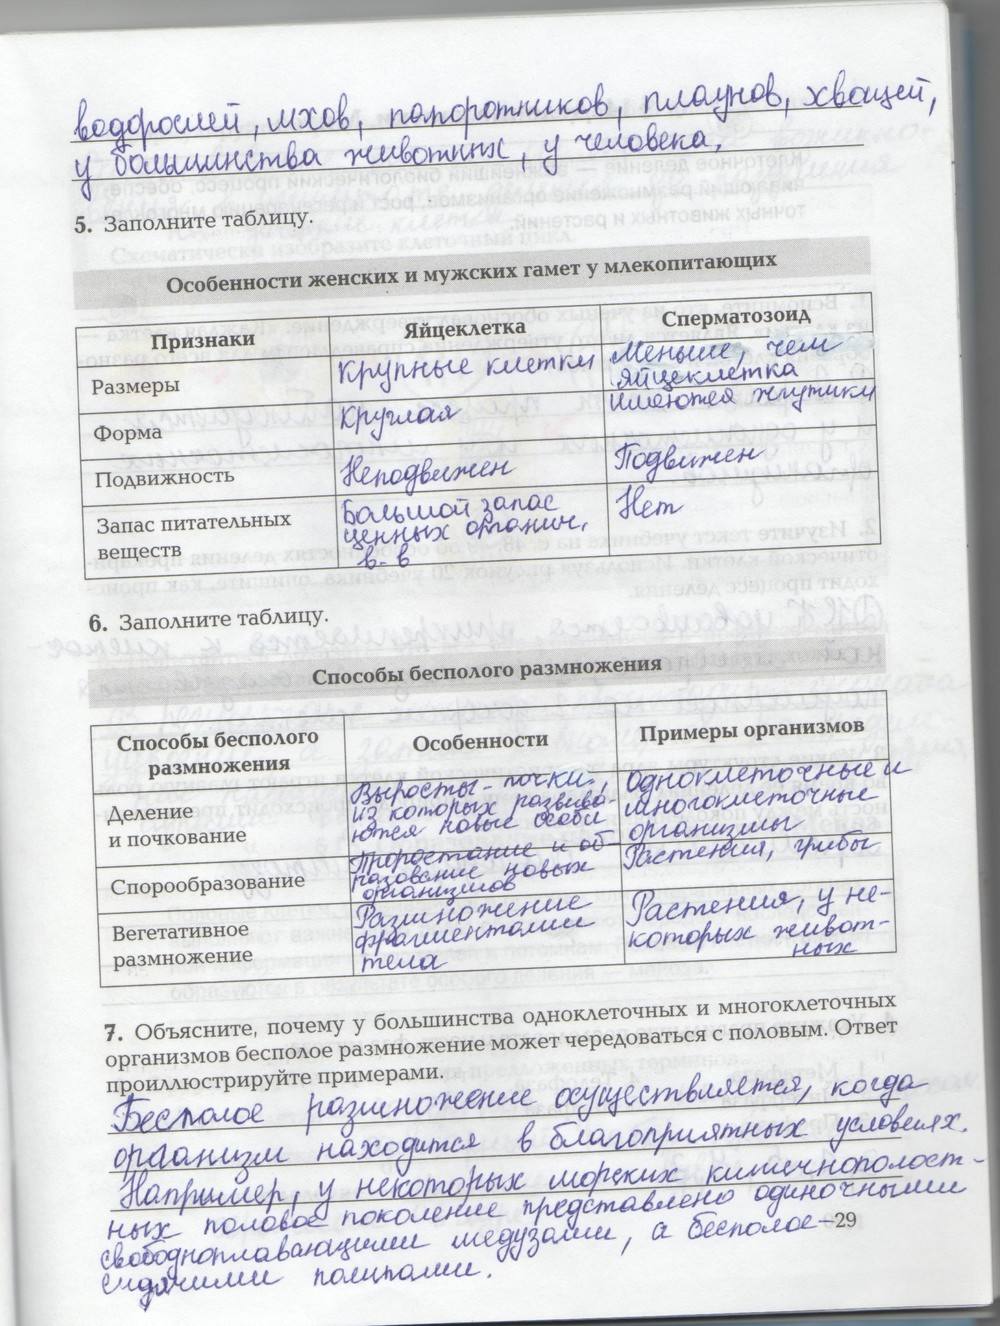 водорослей, мхов, папоротников, плаунов, хвощей,
у большинства животных, у человека.
5. Заполните таблицу.
Особенности женских и мужских гамет у млекопитающих
Признаки Яйцеклетка Сперматозоид
Размеры Крупные клетки Меньше, чем
яйцеклетка
Форма Круглая Имеются жгутики
Подвижность Неподвижен Подвижен
Запас питательных Большой запас Нет
веществ ценных органич.
в-в
6. Заполните таблицу.
Способы бесполого размножения
Способы бесполого Особенности Примеры организмов
размножения
Деление Выросты - почки, одноклеточные и
и почкование из которых развива- многоклеточные
ются новые особи организмы
Спорообразование Проростание и об- Растения, грибы
разование новых
организмов
Вегетативное Размножение Растения, у не-
размножение фрагментами которых живот-
тела ных
7. Объясните, почему у большинства одноклеточных и многоклеточных
организмов бесполое размножение может чередоваться с половым. Ответ
проиллюстрируйте примерами.
Бесполое размножение осуществляется, когда
организм находится в благоприятных условиях.
Например, у некоторых морских кишечнополост-
ных половое поколение представлено одиночными
свободноплавающими медузами, а бесполое -
сидячими полипами.
29